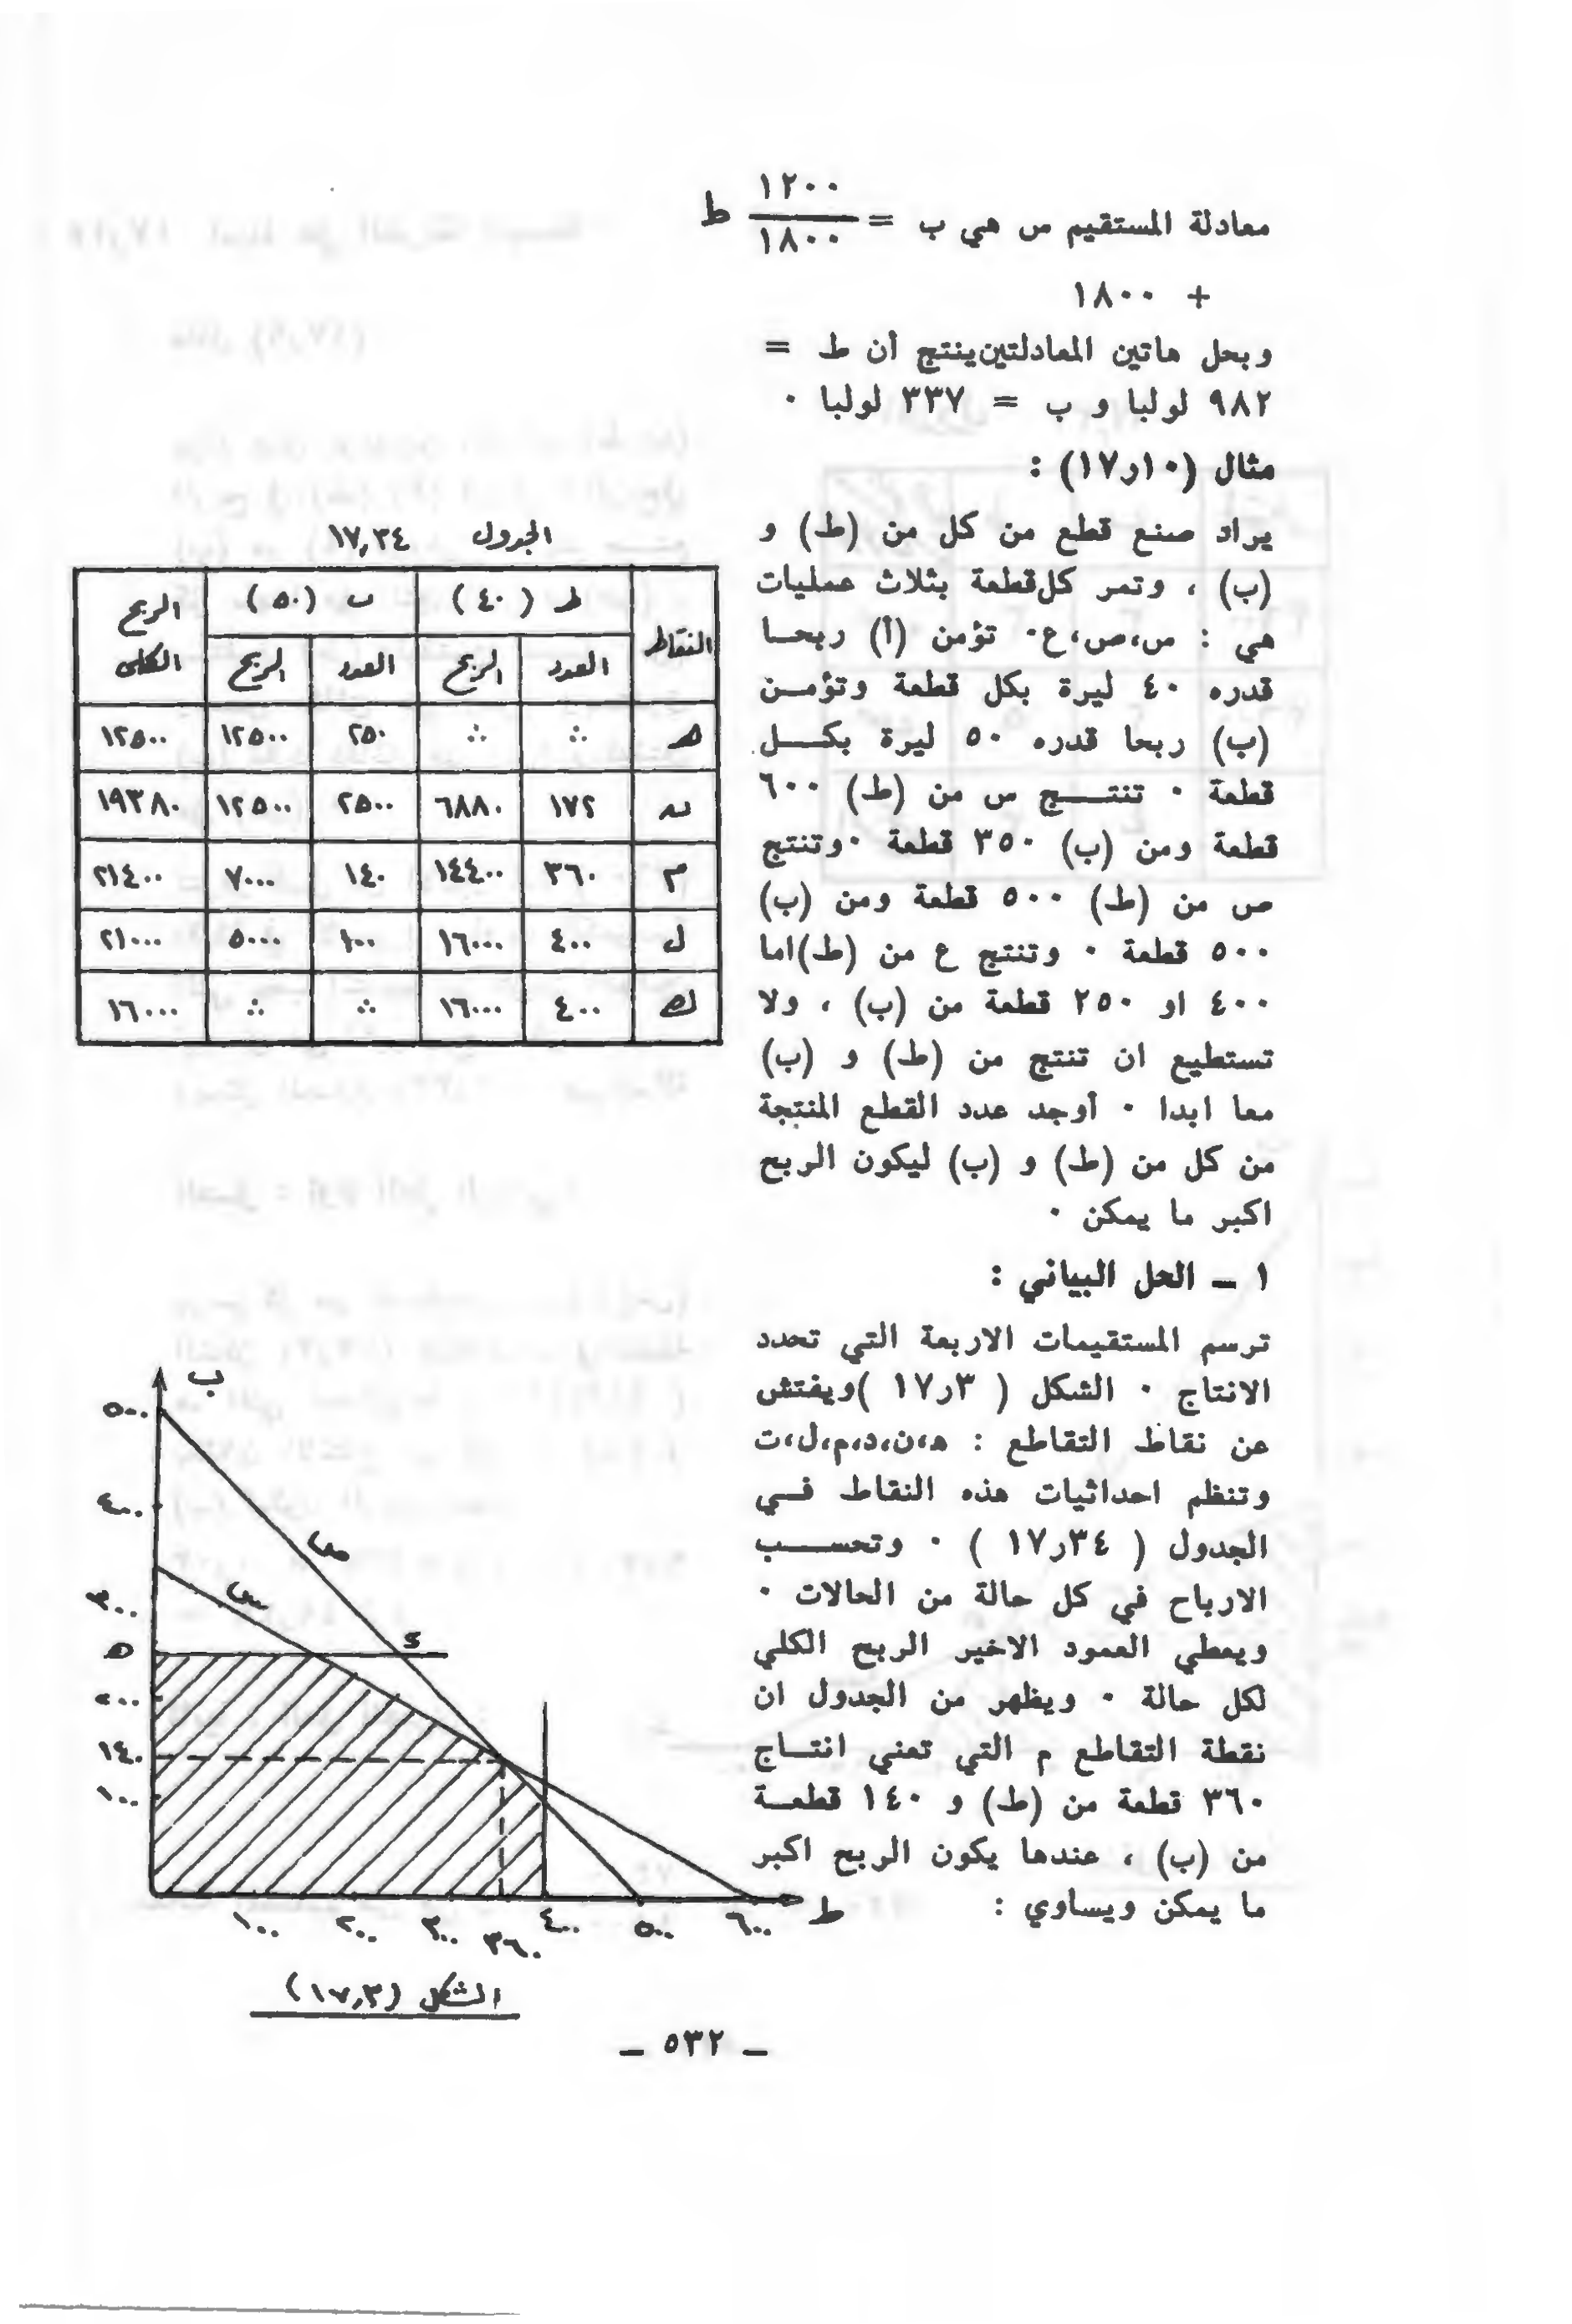 معادلة المستقيم س هي ب = ١٢٠٠ / ١٨٠٠ ط
+ ١٨٠٠
وبحل هاتين المعادلتين ينتج أن ط =
٩٨٢ لولبا و ب = ٣٣٧ لولبا ٠
مثال (١٠ر١٧) :
يراد صنع قطع من كل من (ط) و
(ب) ، وتمر كل قطعة بثلاث عمليات
هي : س،ص،ع٠ تؤمن (أ) ربحـا
قدره ٤٠ ليرة بكل قطعة وتؤمـن
(ب) ربحا قدره ٥٠ ليرة بكـــل
قطعة ٠ تنتـــج س من (ط) ٦٠٠
قطعة ومن (ب) ٣٥٠ قطعة ٠وتنتج
ص من (ط) ٥٠٠ قطعة ومن (ب)
٥٠٠ قطعة ٠ وتنتج ع من (ط)اما
٤٠٠ او ٢٥٠ قطعة من (ب) ، ولا
تستطيع ان تنتج من (ط) و (ب)
معا ابدا ٠ أوجد عدد القطع المنتجة
من كل من (ط) و (ب) ليكون الربح
اكبر ما يمكن ٠
١ ــ الحل البياني :
ترسم المستقيمات الاربعة التي تحدد
الانتاج ٠ الشكل ( ٣ر١٧ )ويفتش
عن نقاط التقاطع : ه،ن،د،م،ل،ت
وتنظم احداثيات هذه النقاط فـي
الجدول ( ٣٤ر١٧ ) ٠ وتحســـب
الارباح في كل حالة من الحالات ٠
ويعطي العمود الاخير الربح الكلي
لكل حالة ٠ ويظهر من الجدول ان
نقطة التقاطع م التي تعني انتــاج
٣٦٠ قطعة من (ط) و ١٤٠ قطعــة
من (ب) ، عندها يكون الربح اكبر
ما يمكن ويساوي :
الجدول ١٧,٣٤
النقاط ط (٤٠) ب (٥٠) الربح الكلي
العدد الربح العدد الربح
هـ ∴ ∴ ٢٥٠ ١٢٥٠٠ ١٢٥٠٠
ن ١٧٢ ٦٨٨٠ ٢٥٠٠ ١٢٥٠٠ ١٩٣٨٠
م ٣٦٠ ١٤٤٠٠ ١٤٠ ٧٠٠٠ ٢١٤٠٠
ل ٤٠٠ ١٦٠٠٠ ١٠٠ ٥٠٠٠ ٢١٠٠٠
٤٠٠ ١٦٠٠٠ ∴ ∴ ١٦٠٠٠
ب
٥٠٠
٤٠٠
ص
٣٠٠
س
هـ
د
٢٠٠
١٤٠
١٠٠
١٠٠ ٢٠٠ ٣٠٠ ٣٦٠ ٤٠٠ ٥٠٠ ٦٠٠ ط
الشكل (١٧,٣)
ــ ٥٣٢ ــ